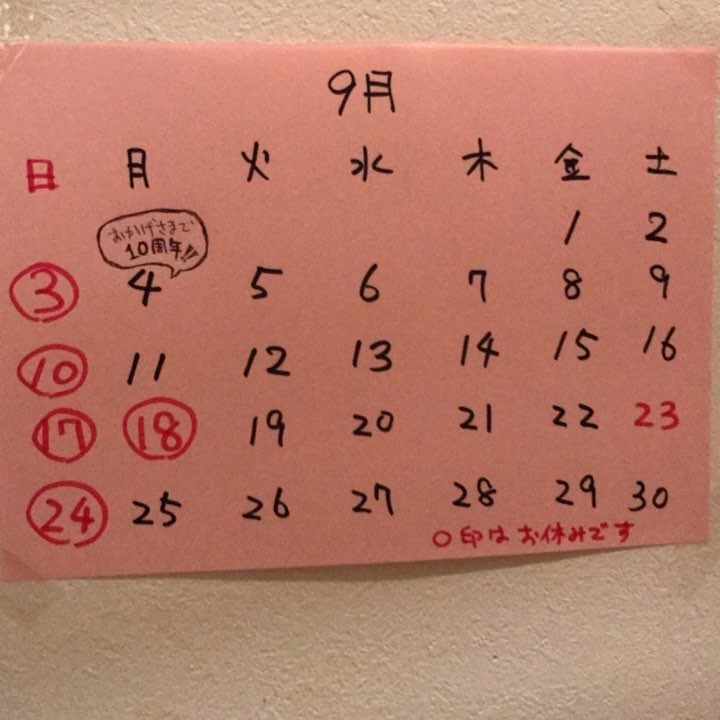 9月
日 月 火 水 木 金 土
おかげさまで
10周年!!
1 2
3 4 5 6 7 8 9
10 11 12 13 14 15 16
17 18 19 20 21 22 23
24 25 26 27 28 29 30
○印はお休みです